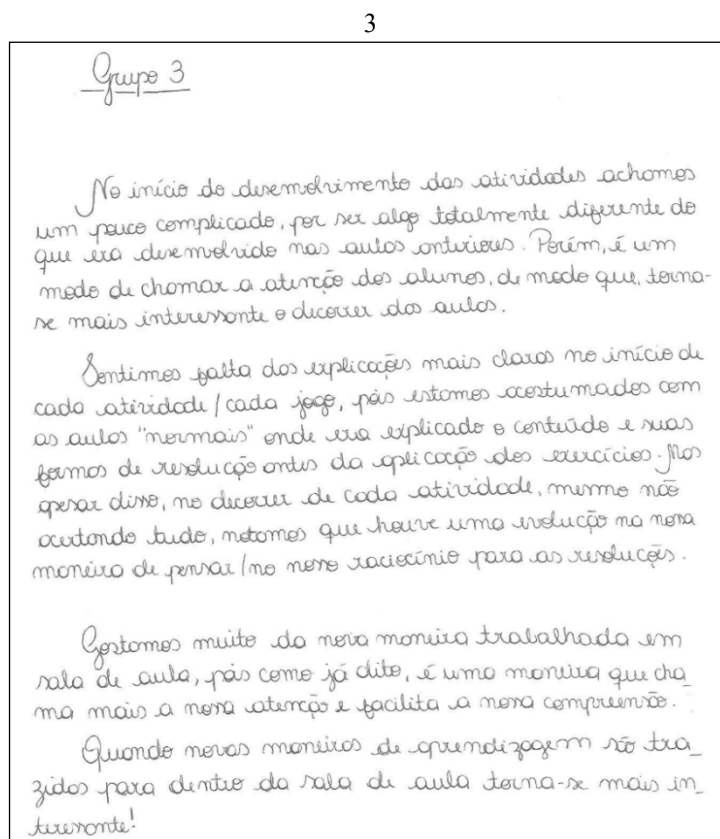 3
Grupo 3
No início do desenvolvimento das atividades achamos
um pouco complicado, por ser algo totalmente diferente do
que era desenvolvido nas aulas anteriores. Porém, é um
modo de chamar a atenção dos alunos, de modo que, torna-
se mais interessante o decorrer das aulas.
Sentimos falta das explicações mais claras no início de
cada atividade/cada jogo, pois estamos acostumados com
as aulas "normais" onde era explicado o conteúdo e suas
formas de resolução antes da aplicação dos exercícios. Mas
apesar disso, no decorrer de cada atividade, mesmo não
acertando tudo, notamos que houve uma evolução na nossa
maneira de pensar/no nosso raciocínio para as resoluções.
Gostamos muito da nova maneira trabalhada em
sala de aula, pois como já dito, é uma maneira que cha_
ma mais a nossa atenção e facilita a nossa compreensão.
Quando novas maneiras de aprendizagem são tra_
zidas para dentro da sala de aula torna-se mais in_
teressante!